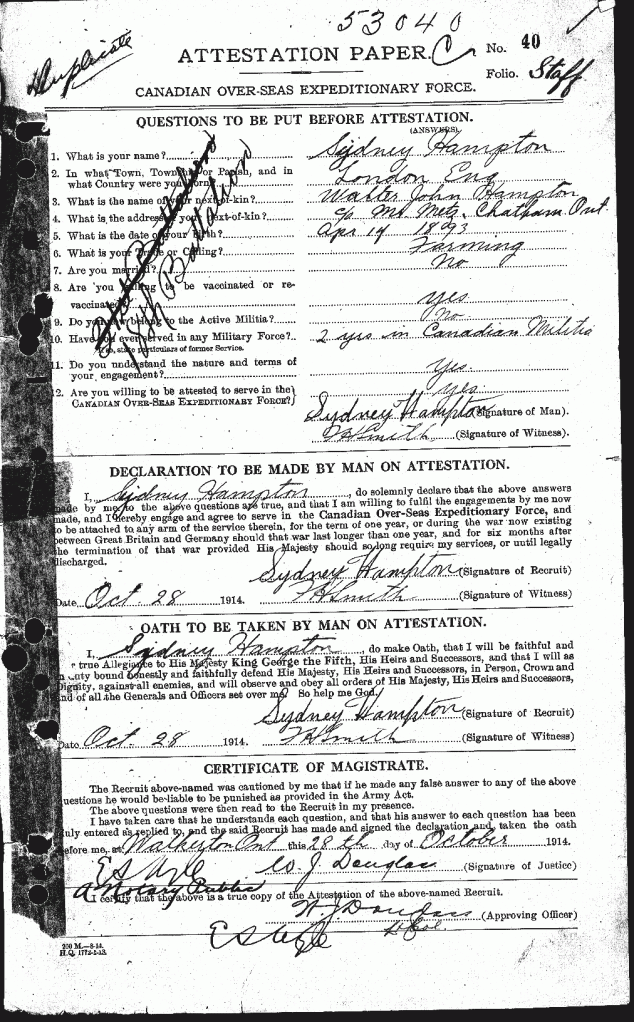 53040
Duplicate
ATTESTATION PAPER. C
No. 40
Folio. Staff
CANADIAN OVER-SEAS EXPEDITIONARY FORCE.
QUESTIONS TO BE PUT BEFORE ATTESTATION.
(ANSWERS).
1. What is your name? Sydney Hampton
2. In what Town, Township or Parish, and in
what Country were you born? London Eng
3. What is the name of your next-of-kin? Walter John Hampton
4. What is the address of your next-of-kin? c/o Mr. Metz, Chatham Ont
5. What is the date of your birth? Apr 14 1893
6. What is your Trade or Calling? Farming
7. Are you married? No
8. Are you willing to be vaccinated or re-
vaccinated? yes
9. Do you now belong to the Active Militia? No
10. Have you ever served in any Military Force? 2 yrs in Canadian Militia
If so, state particulars of former Service.
11. Do you understand the nature and terms of
your engagement? Yes.
12. Are you willing to be attested to serve in the
CANADIAN OVER-SEAS EXPEDITIONARY FORCE? yes.
Battalion
Sydney Hampton (Signature of Man).
Smith (Signature of Witness).
DECLARATION TO BE MADE BY MAN ON ATTESTATION.
I, Sydney Hampton, do solemnly declare that the above answers
made by me to the above questions are true, and that I am willing to fulfil the engagements by me now
made, and I hereby engage and agree to serve in the Canadian Over-Seas Expeditionary Force, and
to be attached to any arm of the service therein, for the term of one year, or during the war now existing
between Great Britain and Germany should that war last longer than one year, and for six months after
the termination of that war provided His Majesty should so long require my services, or until legally
discharged.
Sydney Hampton (Signature of Recruit)
Date Oct 28 1914. Smith (Signature of Witness)
OATH TO BE TAKEN BY MAN ON ATTESTATION.
I, Sydney Hampton, do make Oath, that I will be faithful and
r true Allegiance to His Majesty King George the Fifth, His Heirs and Successors, and that I will as
n duty bound honestly and faithfully defend His Majesty, His Heirs and Successors, in Person, Crown and
Dignity, against all enemies, and will observe and obey all orders of His Majesty, His Heirs and Successors,
nd of all the Generals and Officers set over me. So help me God.
Sydney Hampton (Signature of Recruit)
Date Oct. 28 1914. Smith (Signature of Witness)
CERTIFICATE OF MAGISTRATE.
The Recruit above-named was cautioned by me that if he made any false answer to any of the above
questions he would be liable to be punished as provided in the Army Act.
The above questions were then read to the Recruit in my presence.
I have taken care that he understands each question, and that his answer to each question has been
duly entered as replied to, and the said Recruit has made and signed the declaration and taken the oath
before me, at Walkerton Ont this 28th day of October 1914.
W. J. Douglas (Signature of Justice)
A Notary Public
I certify that the above is a true copy of the Attestation of the above-named Recruit.
W. J. Douglas (Approving Officer)
Lt Col.
200 M.—8-14.
H.Q. 1772-2-13.